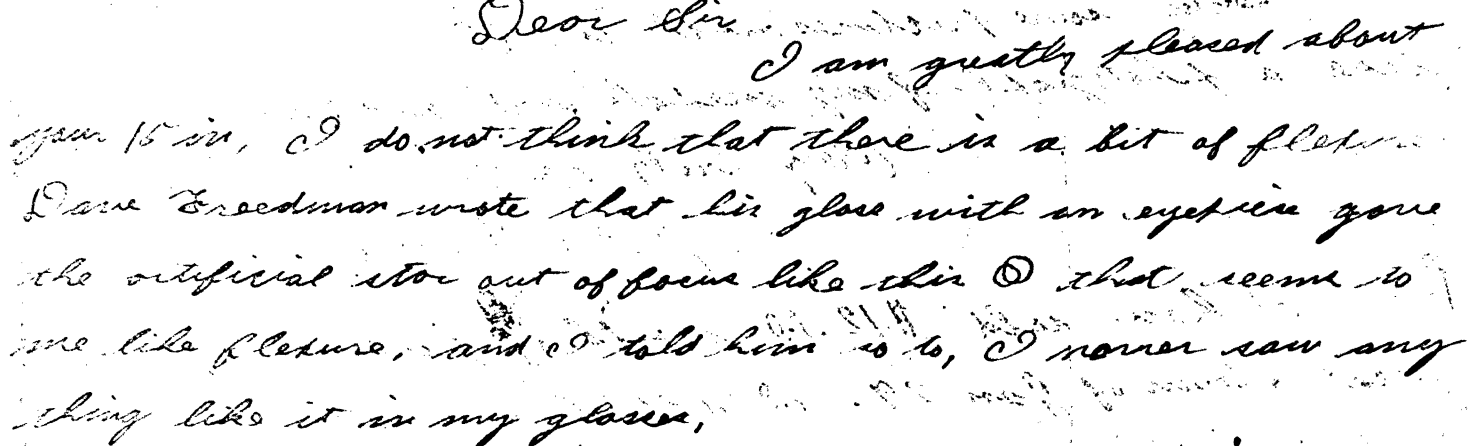 Dear Sir
I am greatly pleased about
your 15 in, I do not think that there is a bit of flexure
Dave Freedman wrote that his glass with an eyepiece gave
the artificial star out of focus like this that seems to
me like flexure, and I told him so to, I norrer saw any
thing like it in my glasses,